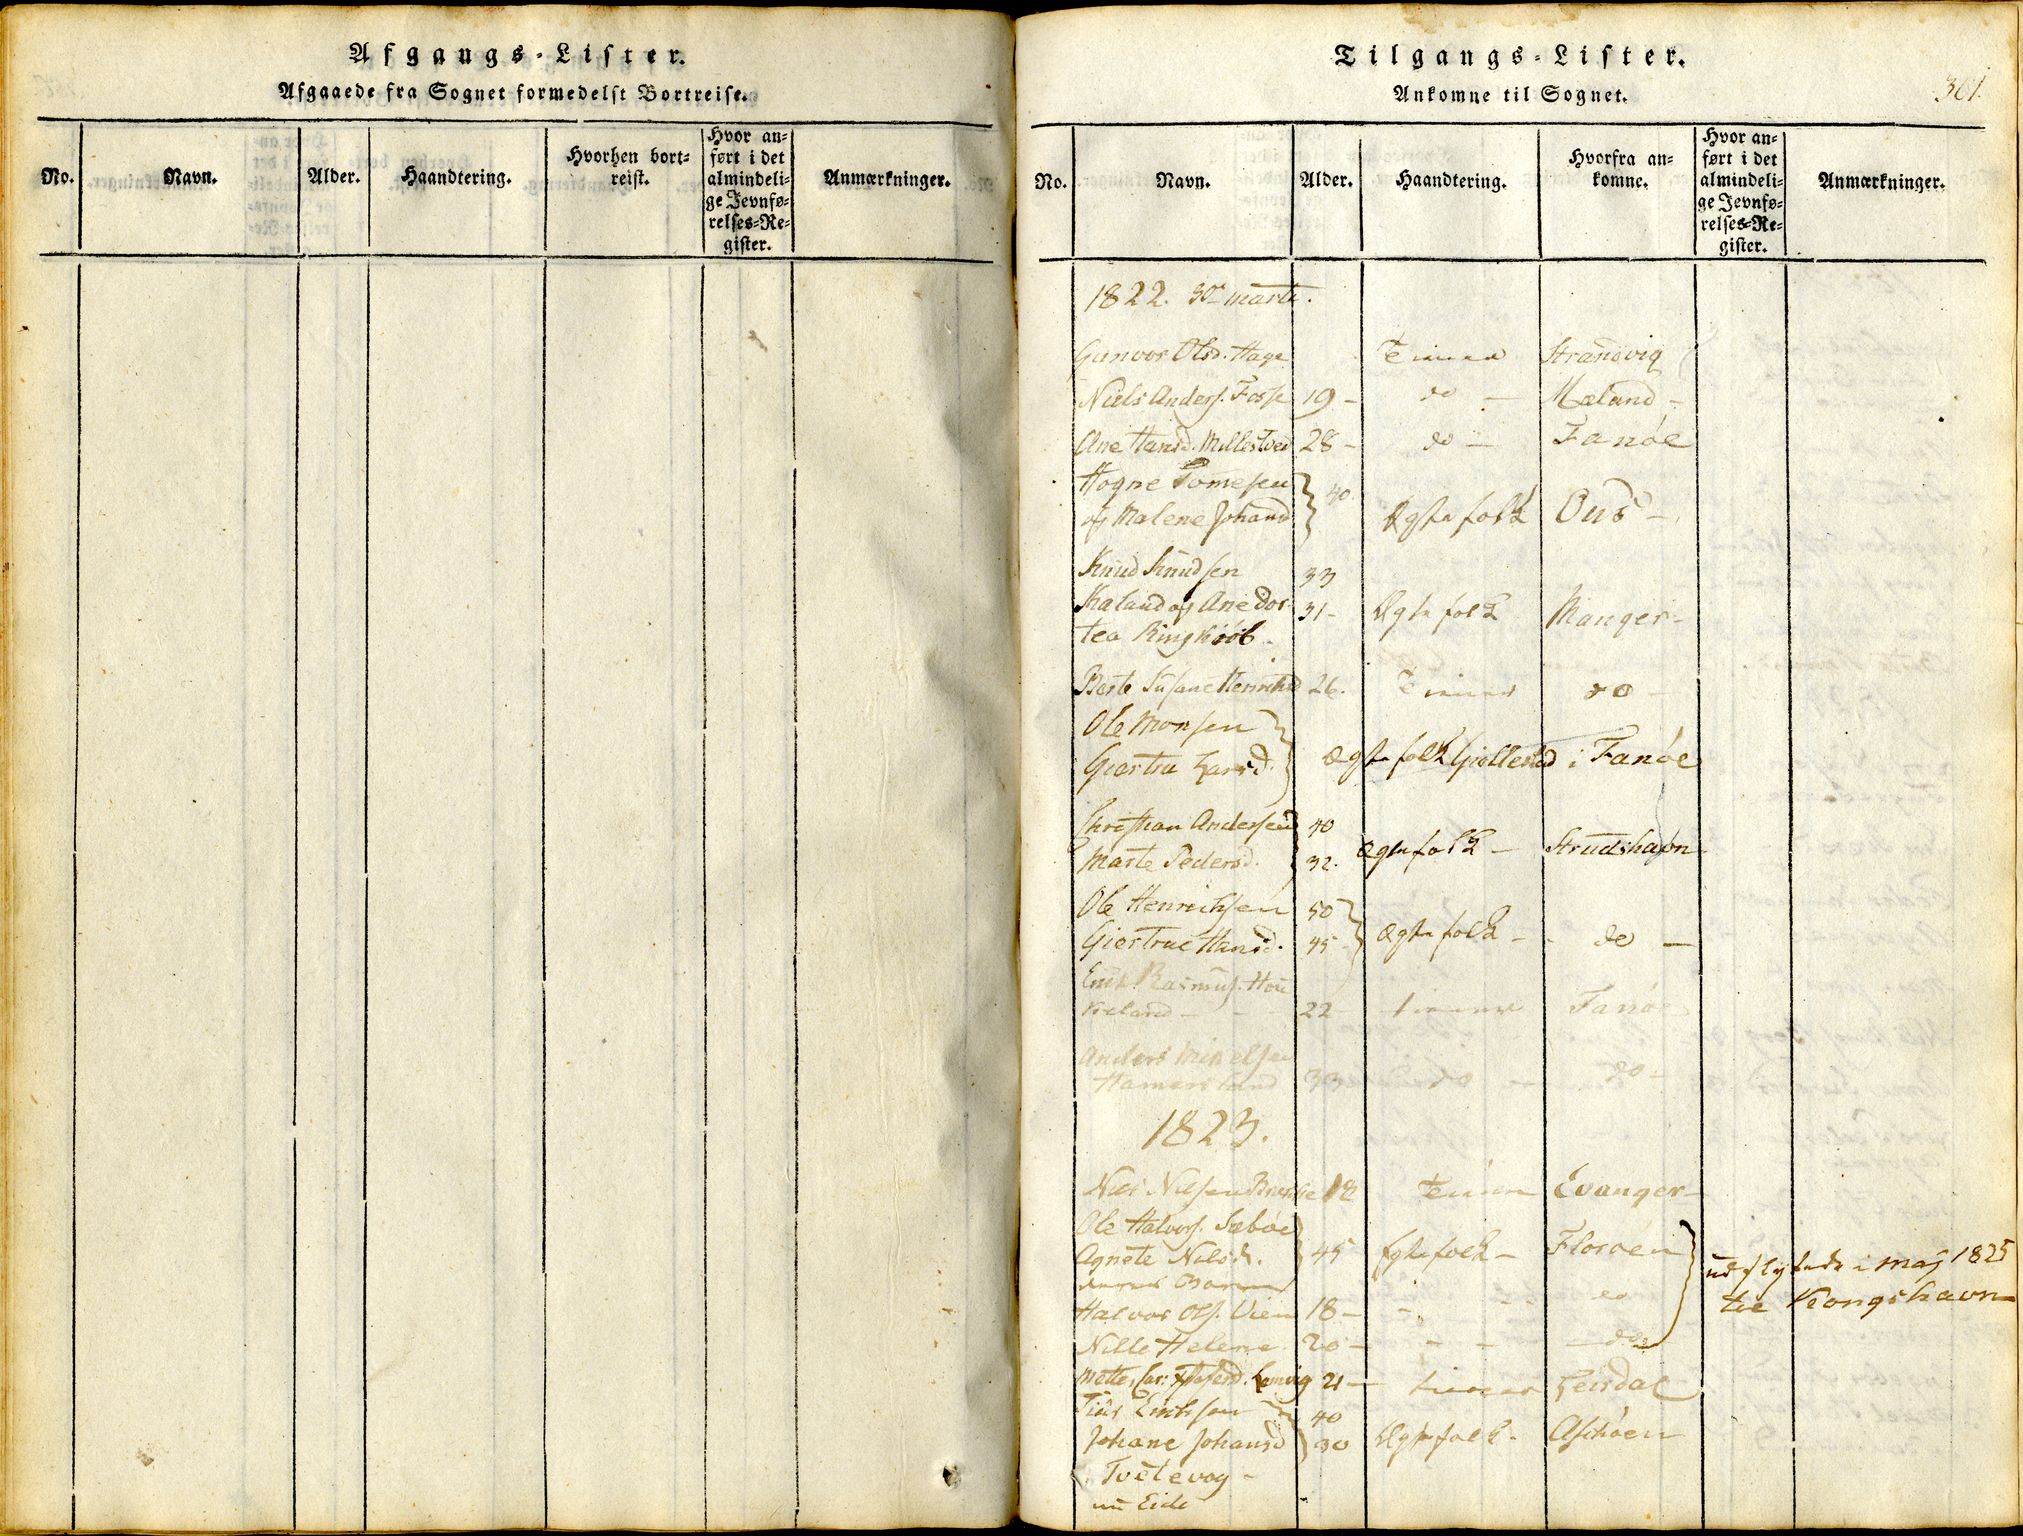 Afgangs-Lister.
Afgaaede fra Sognet formedelst Bortreise.
No.
Navn.
Alder.
Haandtering.
Hvorhen bort-
reist.
Hvor an-
ført i det
almindeli-
ge Jevnfø-
relses-Re-
gister.
Anmærkninger.
Tilgangs-Lister.
Ankomne til Sognet.
301.
No.
Navn.
Alder.
Haandtering.
Hvorfra an-
komne.
Hvor an-
ført i det
almindeli-
ge Jevnfø-
relses-Re-
gister.
Anmærkninger.
1822. 30te marts.
Gunvor Olsd. Hage Tiener Strandvig
Niels Anders. Fosse 19 - do - Mæland -
Ane Hansd. 28 - do - Fanöe
Hogne Tomesen 40.
og Malene Johansd Ægtefolk Ous -
Knud Knudsen 33
Kaland og Ane Dor- 31 - Ægtefolk Manger -
tea Ringkiöb.
Berte Susane Henrichsd 26. Tiener do -
Ole Monsen
Giertru Larsd. Ægtefolk Gjellestad i Fanöe
Christian Andersen 40
Marte Pedersd. 32. Ægtefolk - Strudshavn
Ole Henrichsen 50
Giertrue Hansd. 45 - Ægtefolk - do -
Erik Rasmus. Hou
keland - - 22 tiener Fanöe
Anders Mikelsen
Hamersland 33 do - do -
1823.
Niels Nilsen 18 Tiener Evanger -
Ole Halvors. Sæböe
Agnete Nilsd. 45 Egtefolk - Floröen
deres Børn
Halvor Ols. Vien 18 - - do
Nille Helene 20 - - - do
udflyttede i maj 1825
til Kongshavn
Mette Lemvig 21 - tiener Leirdal
Eriksen 40
Johane Johansd 30 Ægtefolk - Asköen
Tvetevog -
nu Eide